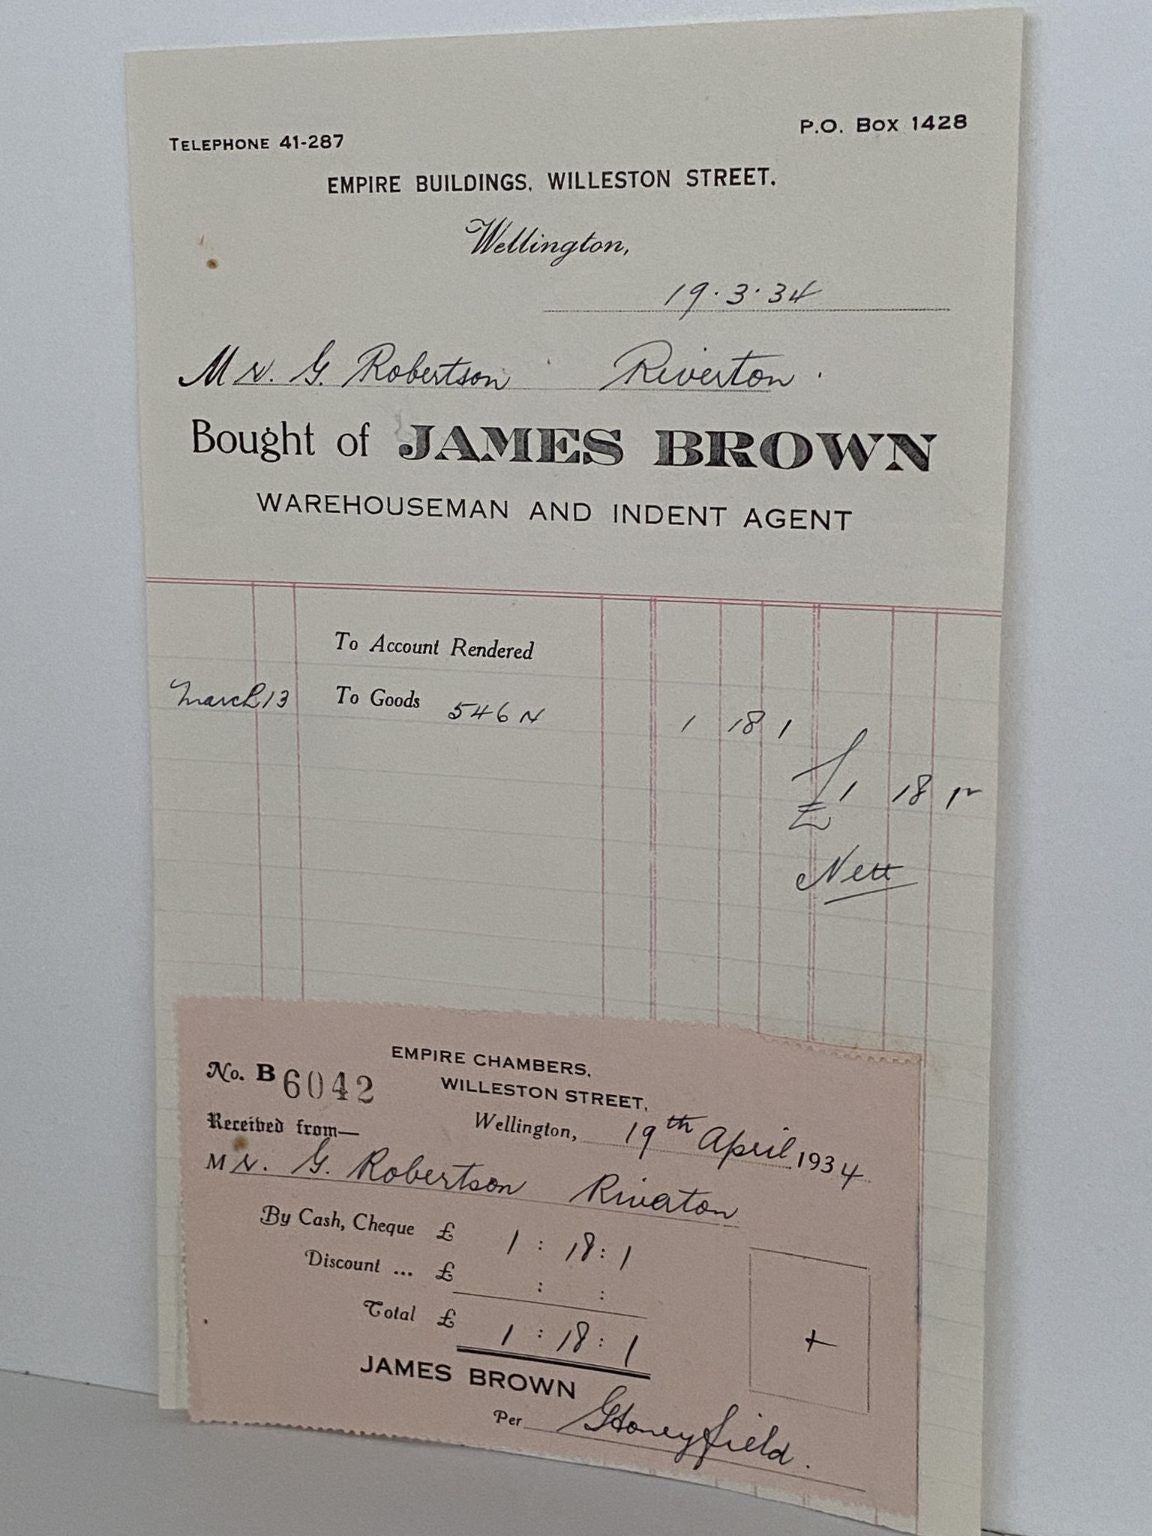 TELEPHONE 41-287
P.O. BOX 1428
EMPIRE BUILDINGS, WILLESTON STREET.
Wellington,
19.3.34
Mr. G. Robertson Riverton.
Bought of JAMES BROWN
WAREHOUSEMAN AND INDENT AGENT
To Account Rendered
March 13 To Goods 546N 1 18 1
£1 18 1
Nett
EMPIRE CHAMBERS,
No. B 6042 WILLESTON STREET,
Received from— Wellington, 19th April 1934
Mr. G. Robertson Riverton
By Cash, Cheque £ 1 : 18 : 1
Discount ... £ : :
Total £ 1 : 18 : 1
+
JAMES BROWN
Per